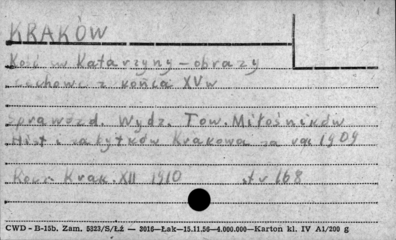 KRAKÓW
Kość w Katarzyny – obrazy
cechowe z końca XV w
Sprawozd. Wydz. Tow. Miłośników
Hist i zabytków Krakowa za rok 1909
Kour Krak. XII 1910 str 168
CWD - B-15b. Zam. 5523/S/Łż — 3016—Łak—15.11.56—4.000.000—Karton kl. IV A1/200 g